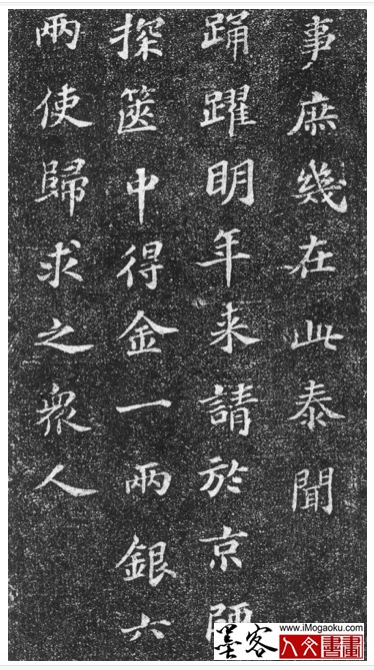 事庶幾在此泰聞
踊躍明年来請於京師
探篋中得金一兩銀六
兩使歸求之衆人
墨客 www.iMogaoku.com
人文書畫